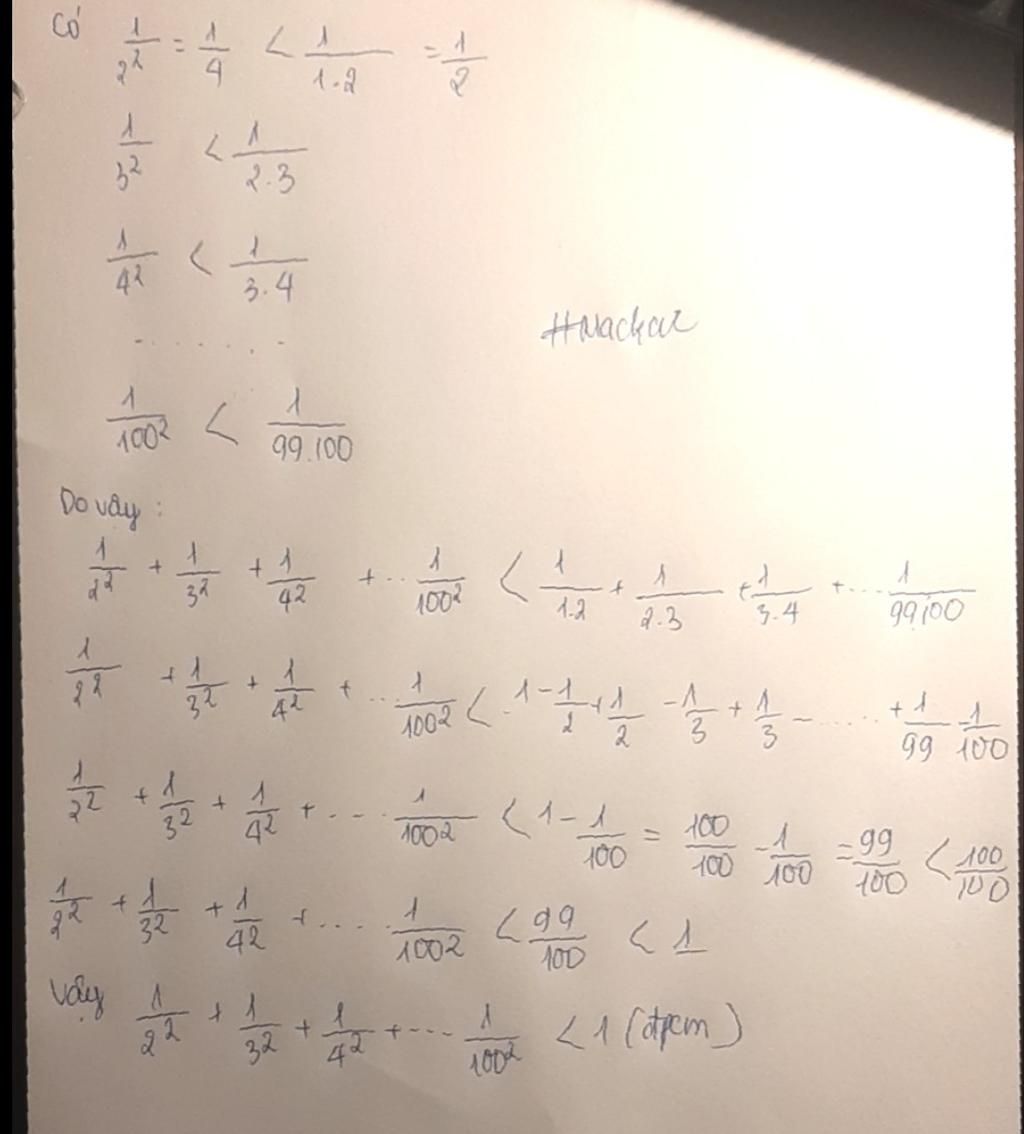 Có 1/2² = 1/4 < 1/1.2 = 1/2
1/3² < 1/2.3
1/4² < 1/3.4
.......
1/100² < 1/99.100
Do vậy :
1/2² + 1/3² + 1/4² + ... 1/100² < 1/1.2 + 1/2.3 + 1/3.4 + ... 1/99.100
1/2² + 1/3² + 1/4² + ... 1/100² < 1 - 1/2 + 1/2 - 1/3 + 1/3 - ...... + 1/99 - 1/100
1/2² + 1/3² + 1/4² + .... 1/100² < 1 - 1/100 = 100/100 - 1/100 = 99/100 < 100/100
1/2² + 1/3² + 1/4² + .... 1/100² < 99/100 < 1
Vậy 1/2² + 1/3² + 1/4² + ... 1/100² < 1 (đpcm)